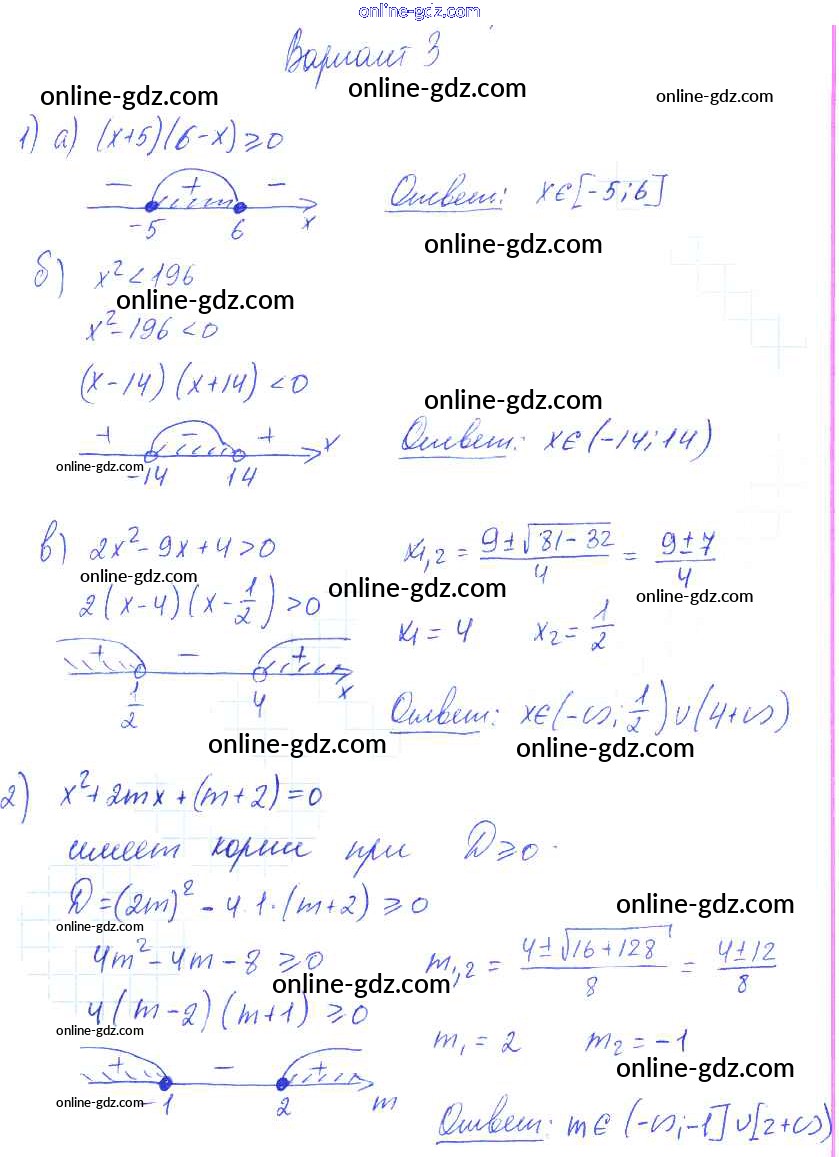 online-gdz.com
Вариант 3
online-gdz.com online-gdz.com online-gdz.com
1) а) (x+5)(6-x)≥0
- + -
-5 6 x
Ответ: x∈[-5;6]
online-gdz.com
б) x²<196
online-gdz.com
x²-196<0
(x-14)(x+14)<0
online-gdz.com
+ - + x
-14 14
Ответ: x∈(-14;14)
online-gdz.com
в) 2x²-9x+4>0
x₁,₂ = (9±√(81-32))/4 = (9±7)/4
online-gdz.com online-gdz.com online-gdz.com
2(x-4)(x-1/2)>0
x₁=4 x₂=1/2
+ - +
1/2 4 x
Ответ: x∈(-∞;1/2)∪(4+∞)
online-gdz.com online-gdz.com
2) x²+2mx+(m+2)=0
имеет корни при D≥0.
D=(2m)²-4·1·(m+2)≥0
online-gdz.com
online-gdz.com
4m²-4m-8≥0
m₁,₂ = (4±√(16+128))/8 = (4±12)/8
online-gdz.com
4(m-2)(m+1)≥0
online-gdz.com
m₁=2 m₂=-1
online-gdz.com
+ - +
-1 2 m
online-gdz.com
Ответ: m∈(-∞;-1]∪[2+∞)